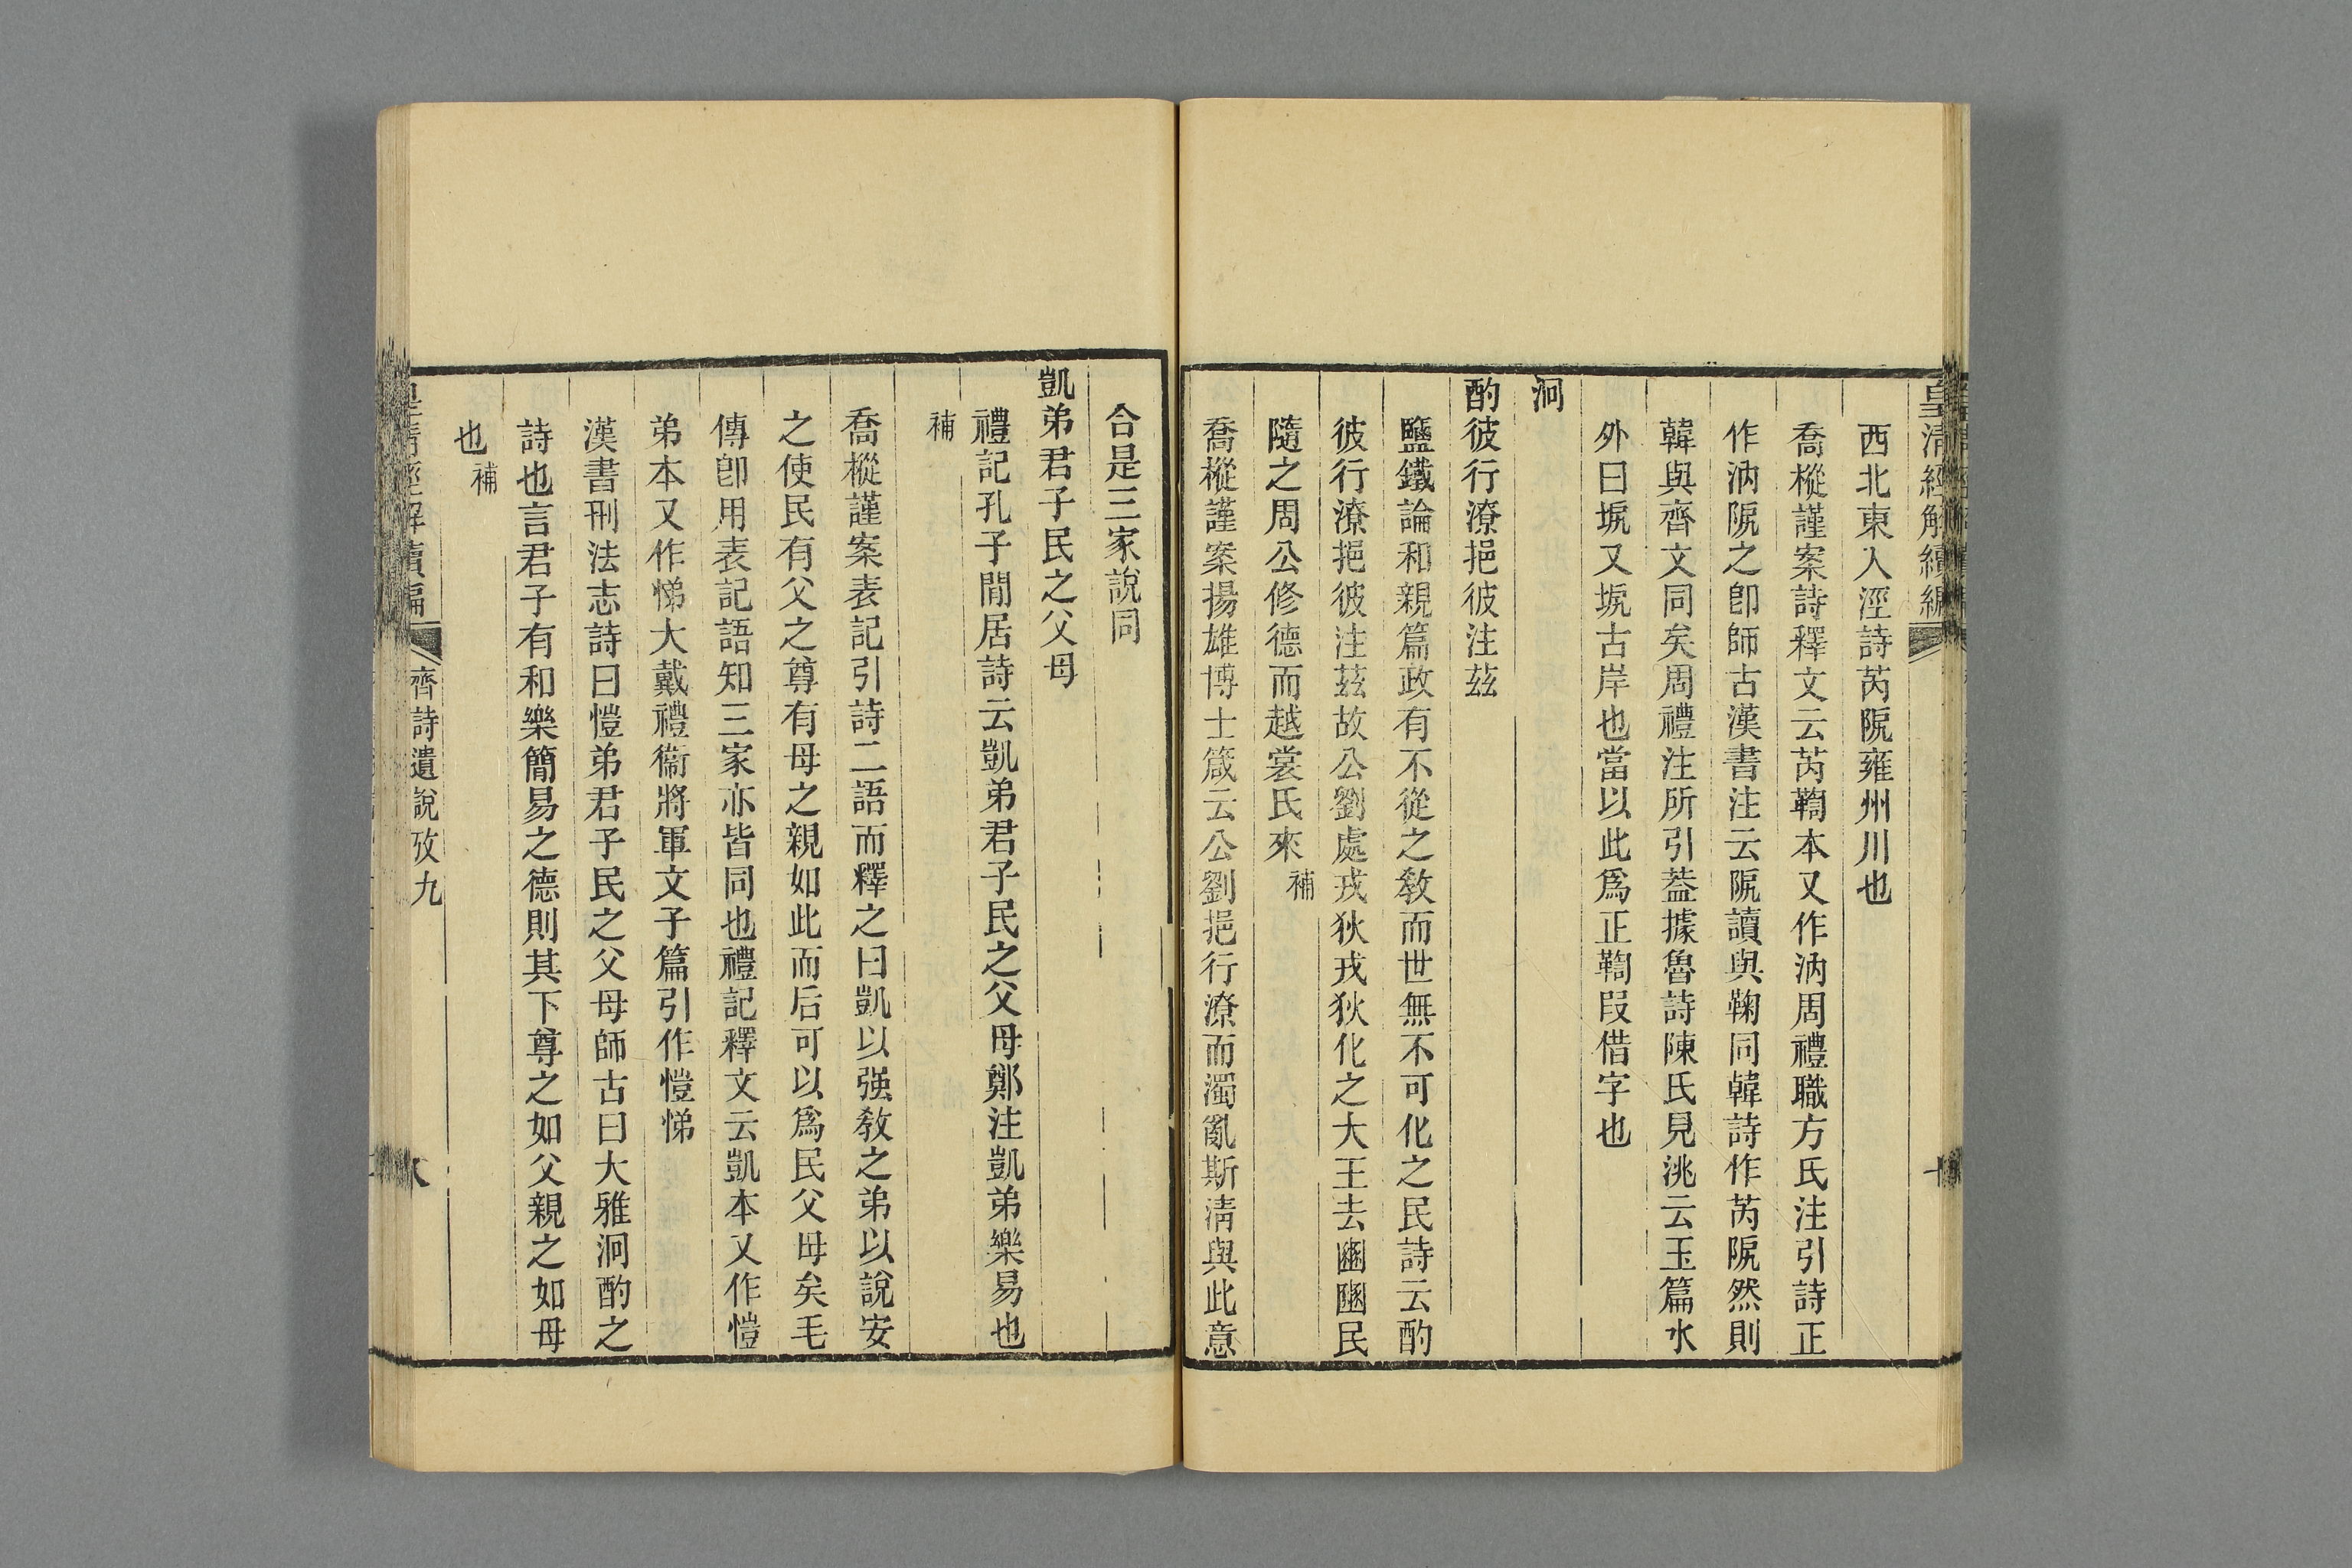 皇清經解續編
西北東入涇詩芮阮雍州川也
喬樅謹案詩釋文云芮鞫本又作汭周禮職方氏注引詩正
作汭阮之卽師古漢書注云阮讀與鞠同韓詩作芮阮然則
韓與齊文同矣周禮注所引葢據魯詩陳氏見洮云玉篇水
外曰㘲又㘲古岸也當以此爲正鞫叚借字也
泂
酌彼行潦挹彼注茲
鹽鐵論和親篇政有不從之敎而世無不可化之民詩云酌
彼行潦挹彼注茲故公劉處戎狄戎狄化之大王去豳豳民
隨之周公修德而越裳氏來補
喬樅謹案揚雄博士箴云公劉挹行潦而濁亂斯淸與此意
合是三家說同
凱弟君子民之父母
禮記孔子閒居詩云凱弟君子民之父母鄭注凱弟樂易也
補
喬樅謹案表記引詩二語而釋之曰凱以强敎之弟以說安
之使民有父之尊有母之親如此而后可以爲民父母矣毛
傳卽用表記語知三家亦皆同也禮記釋文云凱本又作愷
弟本又作悌大戴禮衞將軍文子篇引作愷悌
漢書刑法志詩曰愷弟君子民之父母師古曰大雅泂酌之
詩也言君子有和樂簡易之德則其下尊之如父親之如母
也補
皇淸經解續編 齊詩遺說攷九